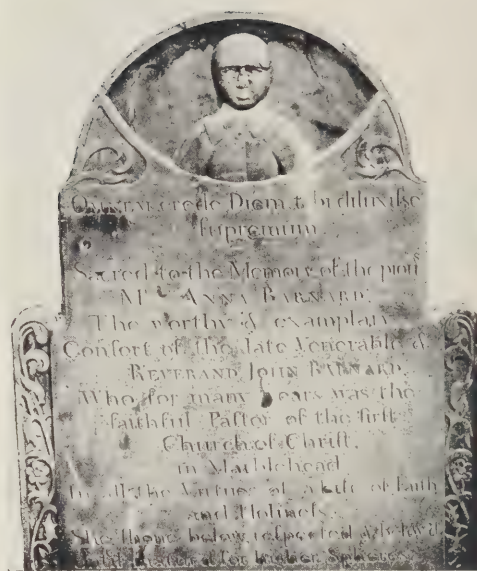 Omnem crede Diem tibi diluxiſse
ſupremum
Sacred to the Memory of the pious
Mrs ANNA BARNARD.
The worthy & examplary
Conſort of the late Venerable &
REVERAND JOHN BARNARD,
Who for many years was the
faithful Paſtor of the firſt
Church of Chriſt,
in Marblehead
In all the Virtues of a Life of Faith
and Holineſs
She
for higher